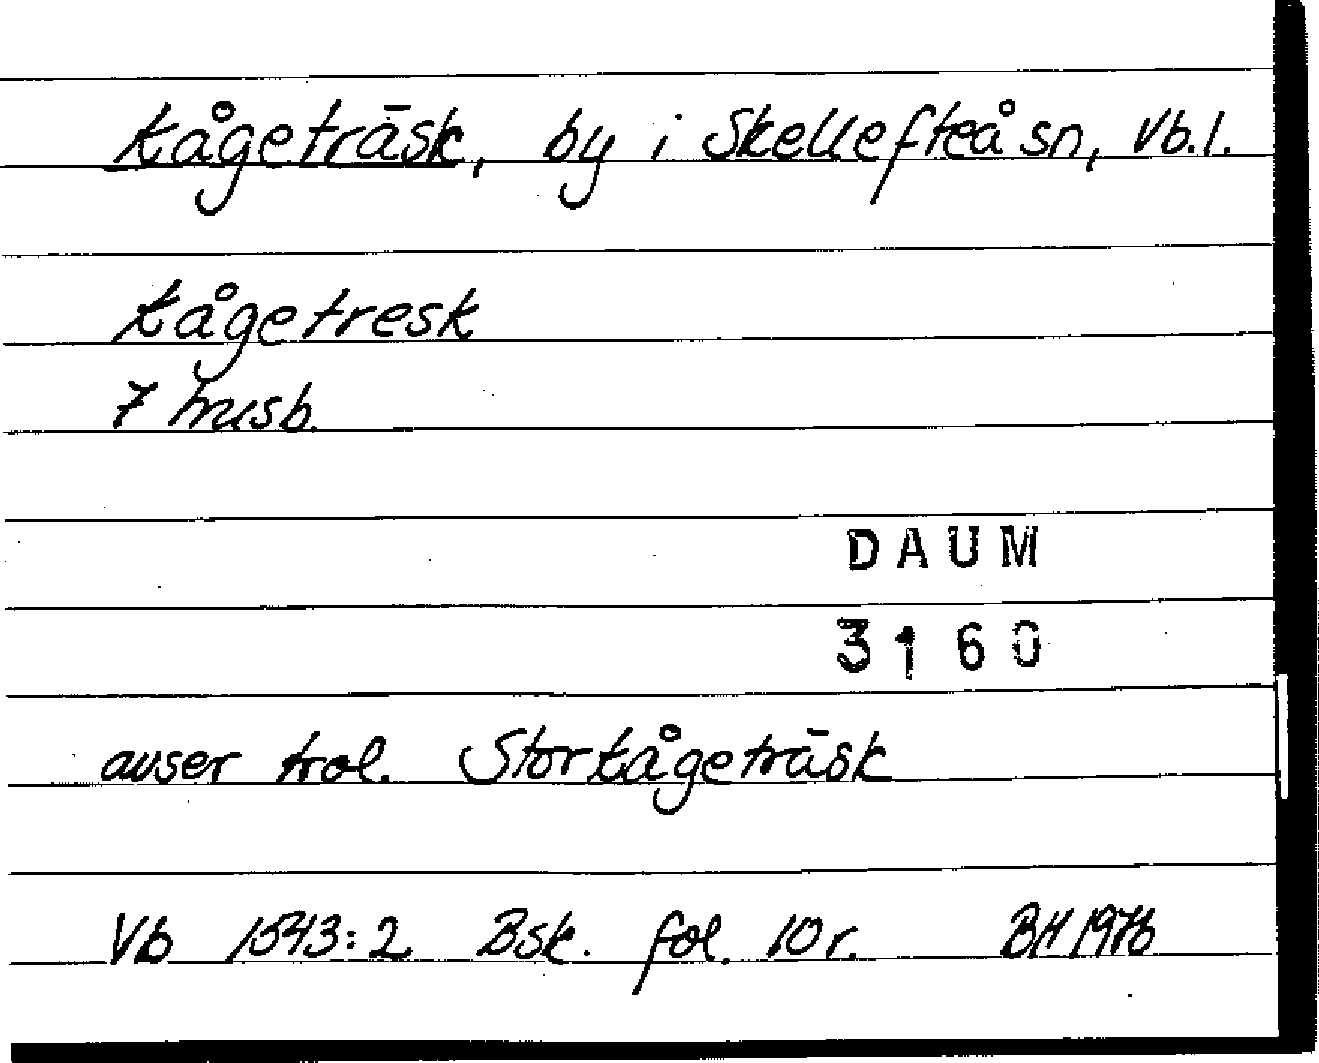 Kågeträsk, by i Skellefteå sn, Vb.l.
Kågetresk
7 husb.
DAUM
3160
avser trol. Storkågeträsk
Vb 1543:2 Bsk. fol. 10 r. BH 1976